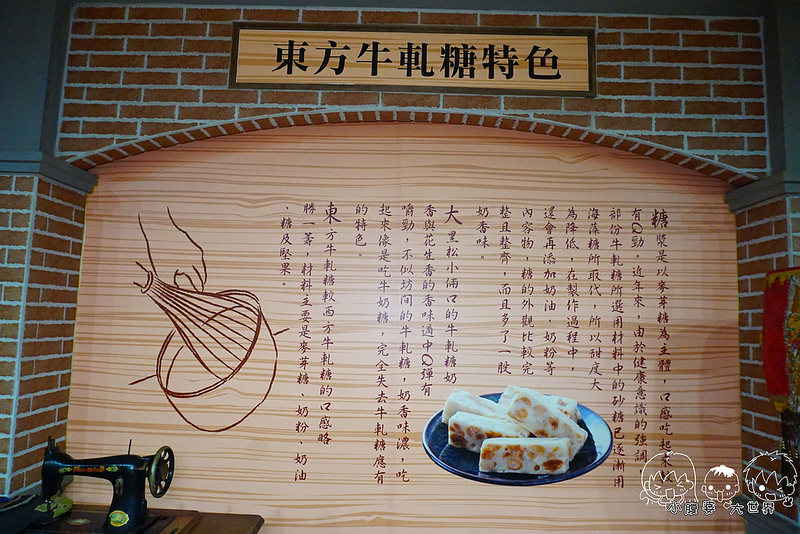 東方牛軋糖特色
糖漿是以麥芽糖為主體，口感吃起來
有Q勁。近年來，由於健康意識的強調，
部份牛軋糖所選用材料中的砂糖已逐漸用
海藻糖所取代，所以甜度大
為降低，在製作過程中，
還會再添加奶油、奶粉等
內容物，糖的外觀比較完
整且整齊，而且多了一股
奶香味。
大黑松小倆口的牛軋糖奶
香與花生香的香味適中Q彈有
嚼勁，不似坊間的牛軋糖，奶香味濃，吃
起來像是吃牛奶糖，完全失去牛軋糖應有
的特色。
東方牛軋糖較西方牛軋糖的口感略
勝一籌，材料主要是麥芽糖、奶粉、奶油
、糖及堅果。
小腹婆 大世界